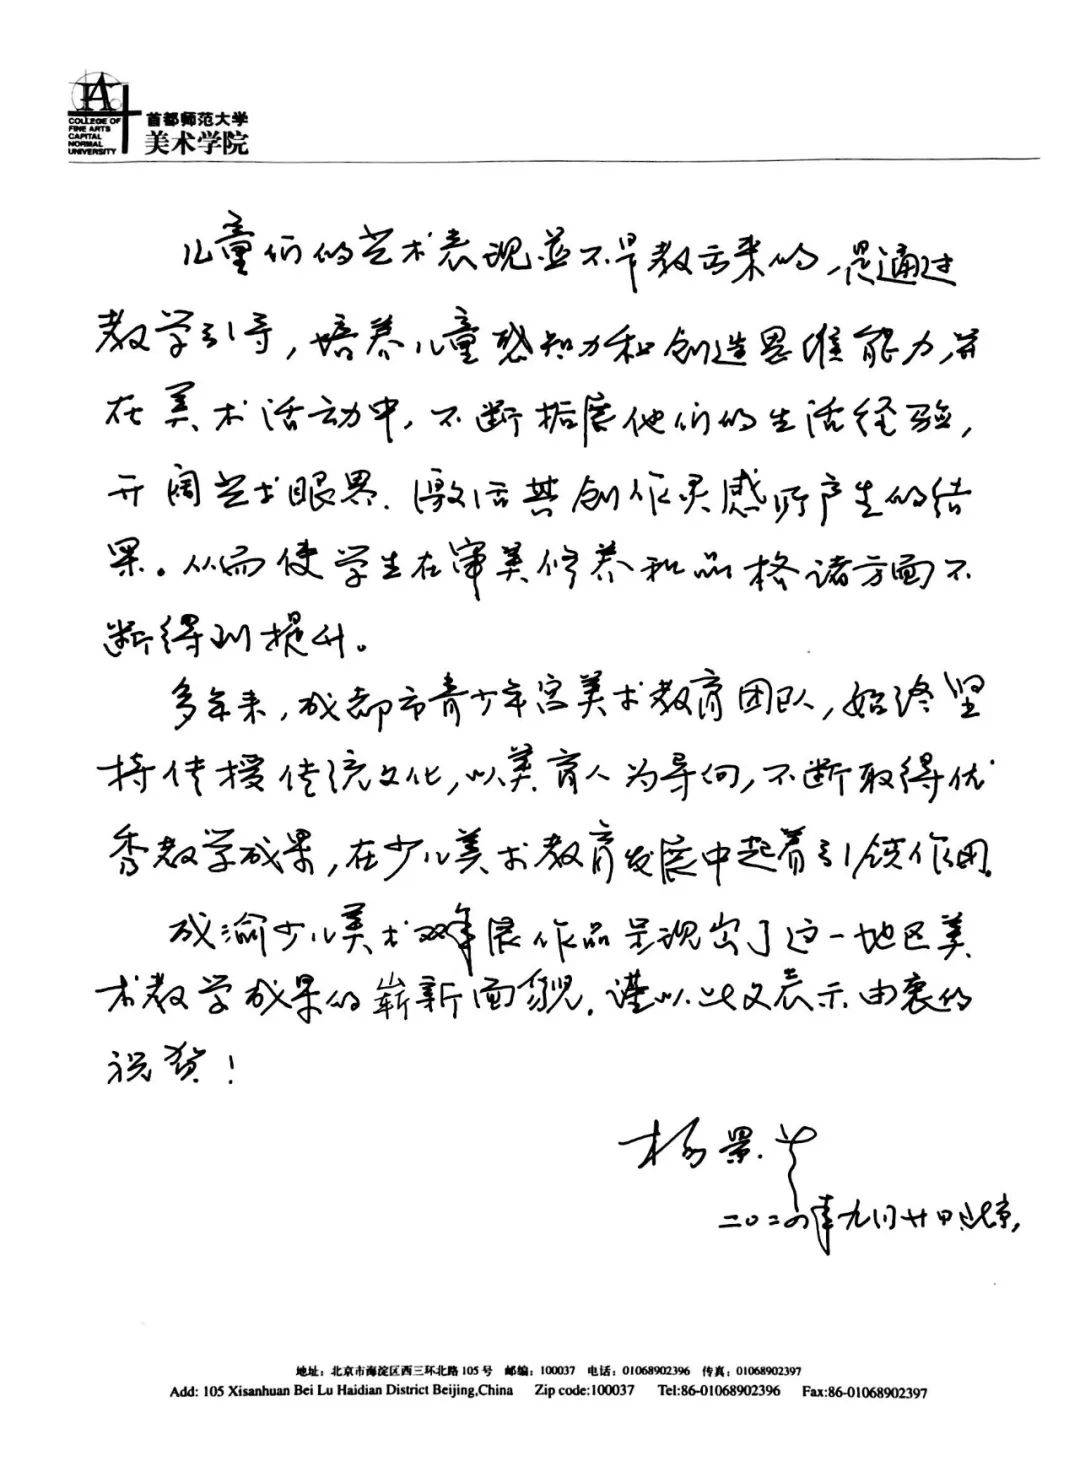 COLLEGE OF
FINE ARTS
CAPITAL
NORMAL
UNIVERSITY
首都师范大学
美术学院
儿童们的艺术表现並不是教出来的，是通过
教学引导，培养儿童感知力和创造思维能力，并
在美术活动中，不断拓展他们的生活经验，
开阔艺术眼界，激活其创作灵感所产生的结
果。从而使学生在审美修养和品格诸方面不
断得到提升。
多年来，成都市青少年宫美术教育团队，始终坚
持传授传统文化，以美育人为导向，不断取得优
秀教学成果，在少儿美术教育发展中起着引领作用。
成渝少儿美术双年展作品呈现出了这一地区美
术教学成果的崭新面貌。谨以此文表示由衷的
祝贺！
杨景芝
二〇二四年九月廿日北京
地址：北京市海淀区西三环北路105号 邮编：100037 电话：01068902396 传真：01068902397
Add: 105 Xisanhuan Bei Lu Haidian District Beijing,China Zip code:100037 Tel:86-01068902396 Fax:86-01068902397